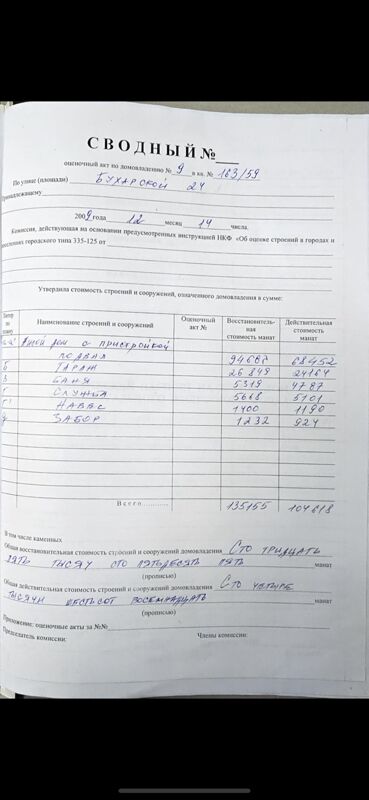 СВОДНЫЙ №
оценочный акт по домовладению № 9 в кв. № 163/59
По улице (площади) БУХАРСКОЙ 24
Принадлежащему
2009 года 12 месяц 14 числа.
Комиссия, действующая на основании предусмотренных инструкцией НКФ «Об оценке строений в городах и
поселениях городского типа 335-125 от
Утвердила стоимость строений и сооружений, означенного домовладения в сумме:
Литер по плану Наименование строений и сооружений Оценочный акт № Восстановительная стоимость манат Действительная стоимость манат
Жилой дом с пристройкой
ПОДВАЛ 94688 68452
Б ГАРАЖ 26849 24164
В БАНЯ 5319 4787
СЛУЖБА 5668 5101
НАВЕС 1400 1190
ЗАБОР 1232 924
Всего........... 135155 104618
В том числе каменных
Общая восстановительная стоимость строений и сооружений домовладения СТО ТРИДЦАТЬ
ПЯТЬ ТЫСЯЧ СТО ПЯТЬДЕСЯТЬ ПЯТЬ манат
(прописью)
Общая действительная стоимость строений и сооружений домовладения СТО ЧЕТЫРЕ
ТЫСЯЧИ ШЕСТЬСОТ ВОСЕМНАДЦАТЬ манат
(прописью)
Приложение: оценочные акты за №№
Председатель комиссии: Члены комиссии: